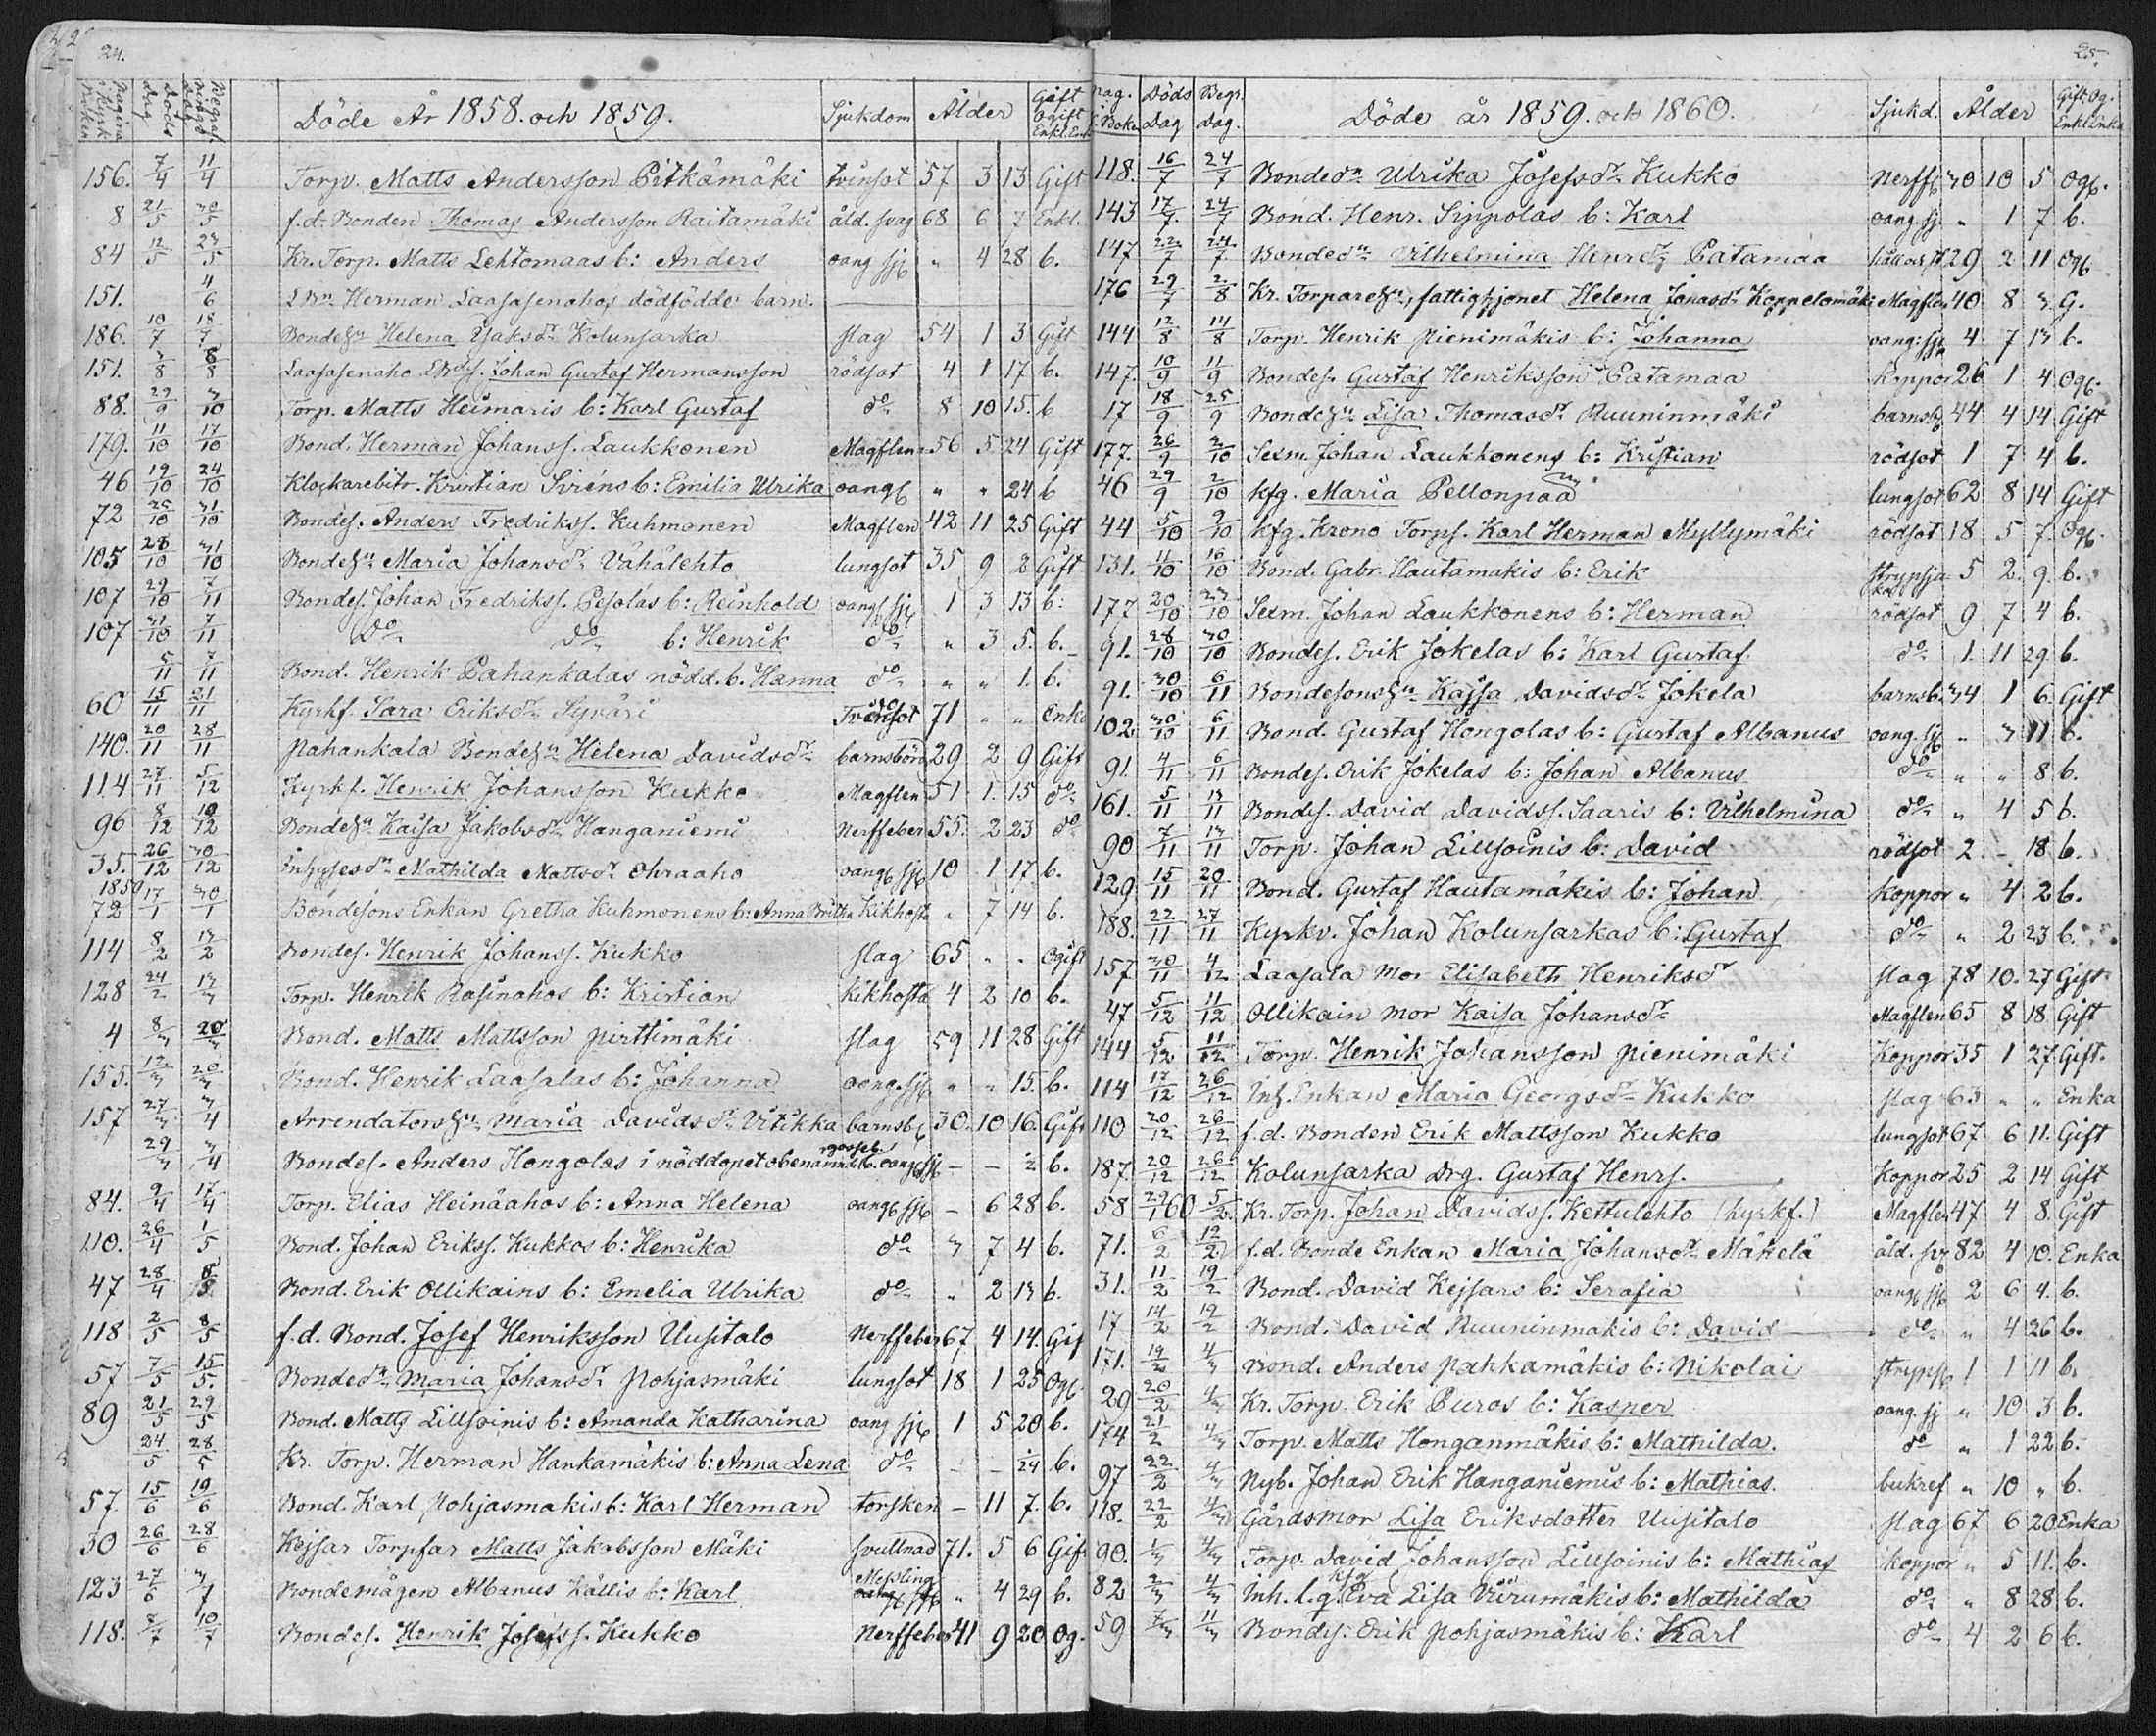 24.
Pagina i Kyrk Boken Döds Dag Begrafnings Dag Döde År 1858. och 1859. Sjukdom Ålder Gift Ogift Enkl. Enka
156. 7/4 11/4 Torp. Matts Andersson Pitkämäki tvinsot 57 3 13 Gift
8 21/5 30/5 f.d. Bonden Thomas Andersson Raitamäki åld. svag 68 6 7 Enkl.
84 12/5 23/5 Kr. Torp. Matts Lehtomaas b: Anders oang sj " 4 28 b.
151. 4/6 Herman Laasasenahos dödfödde barn.
186. 10/7 18/7 Bondeh:u Helena Isaksdr Kolunsarka slag 54 1 3 Gift
151. 3/8 8/8 Laasasenaho Johan Gustaf Hermansson rödsot 4 1 17 b.
88. 29/9 3/10 Torp. Matts Heimaris b: Karl Gustaf do 8 10 15. b
179. 11/10 17/10 Bond. Herman Johanss. Laukkonen Magflen 56 5 24 Gift
46 19/10 24/10 Klockarebitr. Kristian Siréns b: Emilia Ulrika oang " " 24 b
72 25/10 31/10 Bondes. Anders Fredrikss. Kuhmonen Magflen 42 11 25 Gift
105 28/10 31/10 Bondeh:u Maria Johansdr Vähälehto lungsot 35 9 2 Gift
107 29/10 7/11 Bondes. Johan Fredrikss. Pesolas b: Reinhold oang sj 1 3 13 b:
107 31/10 7/11 Do Do b: Henrik do " 3 5. b.
5/11 7/11 Bond. Henrik Pahankalas nödd. b. Hanna do " " 1. b.
60 15/11 21/11 Kyrkf. Sara Eriksdr Syväri Tvinsot 71 " " Enka
140. 20/11 28/11 Pahankala Bondeh:u Helena Davidsdr barnsbörd 29 2 9 Gift
114 27/11 5/12 Kyrkf. Henrik Johansson Kukko Magflen 51 1. 15 do
96 8/12 19/12 Bondeh:u Kaisa Jakobsdr Hanganiemi Nerffeber 55. 2 23 do
35. 26/12 30/12 Inhysesdr Mathilda Mattsdr Ohraaho oang sj 10 1 17 b.
1859
72 17/1 30/1 Bondesons Enkan Gretha Kuhmonens b: Anna Britha Kikhosta " 7 14 b.
114 8/2 13/2 Bondes. Henrik Johanss. Kukko slag 65 " " Ogift
128 24/2 13/3 Torp. Henrik Rasinahos b: Kristian kikhosta 4 2 10 b.
4 8/3 20/3 Bond. Matts Mattsson Pirttimäki slag 59 11 28 Gift
155. 12/3 20/3 Bond. Henrik Laasalas b: Johanna oang. sj " " 15. b.
157 27/3 3/4 Arrendatorsh:u Maria Davidsdr Vitikka barnsb 30. 10 16. Gift
29/3 3/4 Bondes. Anders Hongolas i nöddopet obenämnde gosseb. oang sj - - ½ b.
84. 9/4 17/4 Torp. Elias Heinäahos b: Anna Helena oang sj - 6 28 b.
110. 26/4 1/5 Bond. Johan Erikss. Kukkos b: Henrika do 3 7 4 b.
47 28/4 8/5 Bond. Erik Ollikains b: Emelia Ulrika do " 2 13 b.
118 2/5 8/5 f.d. Bond. Josef Henriksson Uusitalo Nerffeber 67 4 14. Gif
57 7/5 15/5. Bondedr Maria Johansdr Pohjasmäki lungsot 18 1 25 Og.
89 21/5 29/5 Bond. Matts Lillsoinis b: Amanda Katharina oang sj 1 5 20 b.
24/5 28/5 Kr. Torp. Herman Hankamäkis b: Anna Lena do - - b.
57. 15/6 19/6 Bond. Karl Pohjasmakis b: Karl Herman torsken - 11 7. b.
30 26/6 28/6 Kejsar Torpfar Matts Jakobsson Mäki svullnad 71. 5 6 Gif
123 27/6 3/7 Bondemågen Albanus Källis b: Karl Messling " 4 29 b.
118. 7/7 10/7 Bondes. Henrik Josefss. Kukko Nerffeber 41 9 20 Og.
25.
Pag. i Boken Döds Dag Begr. Dag. Döde år 1859. och 1860. Sjukd. Ålder Gift. Og. Enkl. Enka
118. 16/7 24/7 Bondedr Ulrika Josefsdr Kukko Nerff 30 10 5 Og.
143 17/7 24/7 Bond. Henr. Sippolas b: Karl oang. sj. " 1 7 b.
147 22/7 24/7 Bondedr Vilhelmina Henrdr Patamaa 29 2 11 Og
176 29/7 2/8 Kr. Torpareh:u, fattighjonet Helena Jonasdr Koppelomäki Magflen 40 8 3 G.
144 12/8 14/8 Torp. Henrik Pienimäkis b: Johanna oang: sj 4 7 13 b.
147. 10/9 11/9 Bondes. Gustaf Henriksson Patamaa Koppor 26 1 4 Og.
17 18/9 25/9 Bondeh:u Lisa Thomasdr Ruuninmäki barnsb 44 4 14 Gift
177. 26/9 2/10 Sexm. Johan Laukkonens b: Kristian rödsot 1 7 4 b.
46 29/9 2/10 kfg. Maria Pellonpää lungsot 62 8 14 Gift
44 5/10 9/10 kfg. Krono Torps. Karl Herman Myllymäki rödsot 18 5 7. Og.
131. 11/10 16/10 Bond. Gabr. Hautamakis b: Erik strypsju 5 2. 9. b.
177 20/10 23/10 Sexm. Johan Laukkonens b: Herman rödsot 9 7 4 b.
91. 28/10 30/10 Bondes. Erik Jokelas b: Karl Gustaf do 1. 11 29 b.
91. 30/10 6/11 Bondesonsh:u Kajsa Davidsdr Jokela barnsb. 34 1 6. Gift
102 30/10 6/11 Bond. Gustaf Hongolas b: Gustaf Albanus oang. sj " 3 11 b.
91. 4/11 6/11 Bondes. Erik Jokelas b: Johan Albanus do " " 8 b.
161. 5/11 13/11 Bondes. David Davidss. Saaris b: Vilhelmina do " 4 5 b.
90 7/11 13/11 Torp. Johan Lillsoinis b: David rödsot 2 - 18 b.
129 15/11 20/11 Bond. Gustaf Hautamäkis b: Johan koppor " 4 2 b.
188. 22/11 27/11 Kyrkv. Johan Kolunsarkas b: Gustaf do " 2 23 b.
157 30/11 4/12 Laasala mor Elisabeth Henriksdr slag 78 10. 27 Gift
47 5/12 11/12 Ollikain mor Kaisa Johansdr Magflen 65 8 18 Gift
144 5/12 11/12 Torp. Henrik Johansson Pienimäki Koppor 35 1 27 Gift.
114 17/12 26/12 Inh. Enkan Maria Georgsdr Kukko slag 63 " " Enka
110 20/12 26/12 f.d. Bonden Erik Mattsson Kukko lungsot 67 6 11. Gift
187. 20/12 26/12 Kolunsarka Drg. Gustaf Henrs. Koppor 25 2 14 Gift
58 29/1 60 5/2. Kr. Torp. Johan Davidss. Kettulehto (kyrkf.) Magflen 47 4 8. Gift
71. 6/2 12/2 f.d. Bonde Enkan Maria Johansdr Mäkelä åld. sv 82 4 10. Enka
31. 11/2 19/2 Bond. David Kejsars b: Serafia oang sj 2 6 4. b.
17 14/2 19/2 Bond. David Ruuninmakis b: David do " 4 26 b.
171. 19/2 4/3 Bond. Anders Pahkamäkis b: Nikolai stryps 1 1 11 b.
29 20/2 4/3 Kr. Torp. Erik Puros b: Kasper oang. sj " 10 3 b.
174 21/2 4/3 Torp. Matts Honganmäkis b: Mathilda. do " 1 22 b.
97 22/2 4/3 Nyb. Johan Erik Hanganiemis b: Mathias. bukref " 10 " b.
118. 22/2 4/3 Gårdsmor Lisa Eriksdotter Uusitalo slag 67 6 20 Enka
90. 1/3 4/3 Torp. David Johansson Lillsoinis b: Mathias koppor " 5 11. b.
82 2/3 4/3 Inh. l.q. kfg Eva Lisa Viirumäkis b: Mathilda do " 8 28 b.
59 7/3 11/3 Bondes: Erik Pohjasmäkis b: Karl do 4 2 6 b.